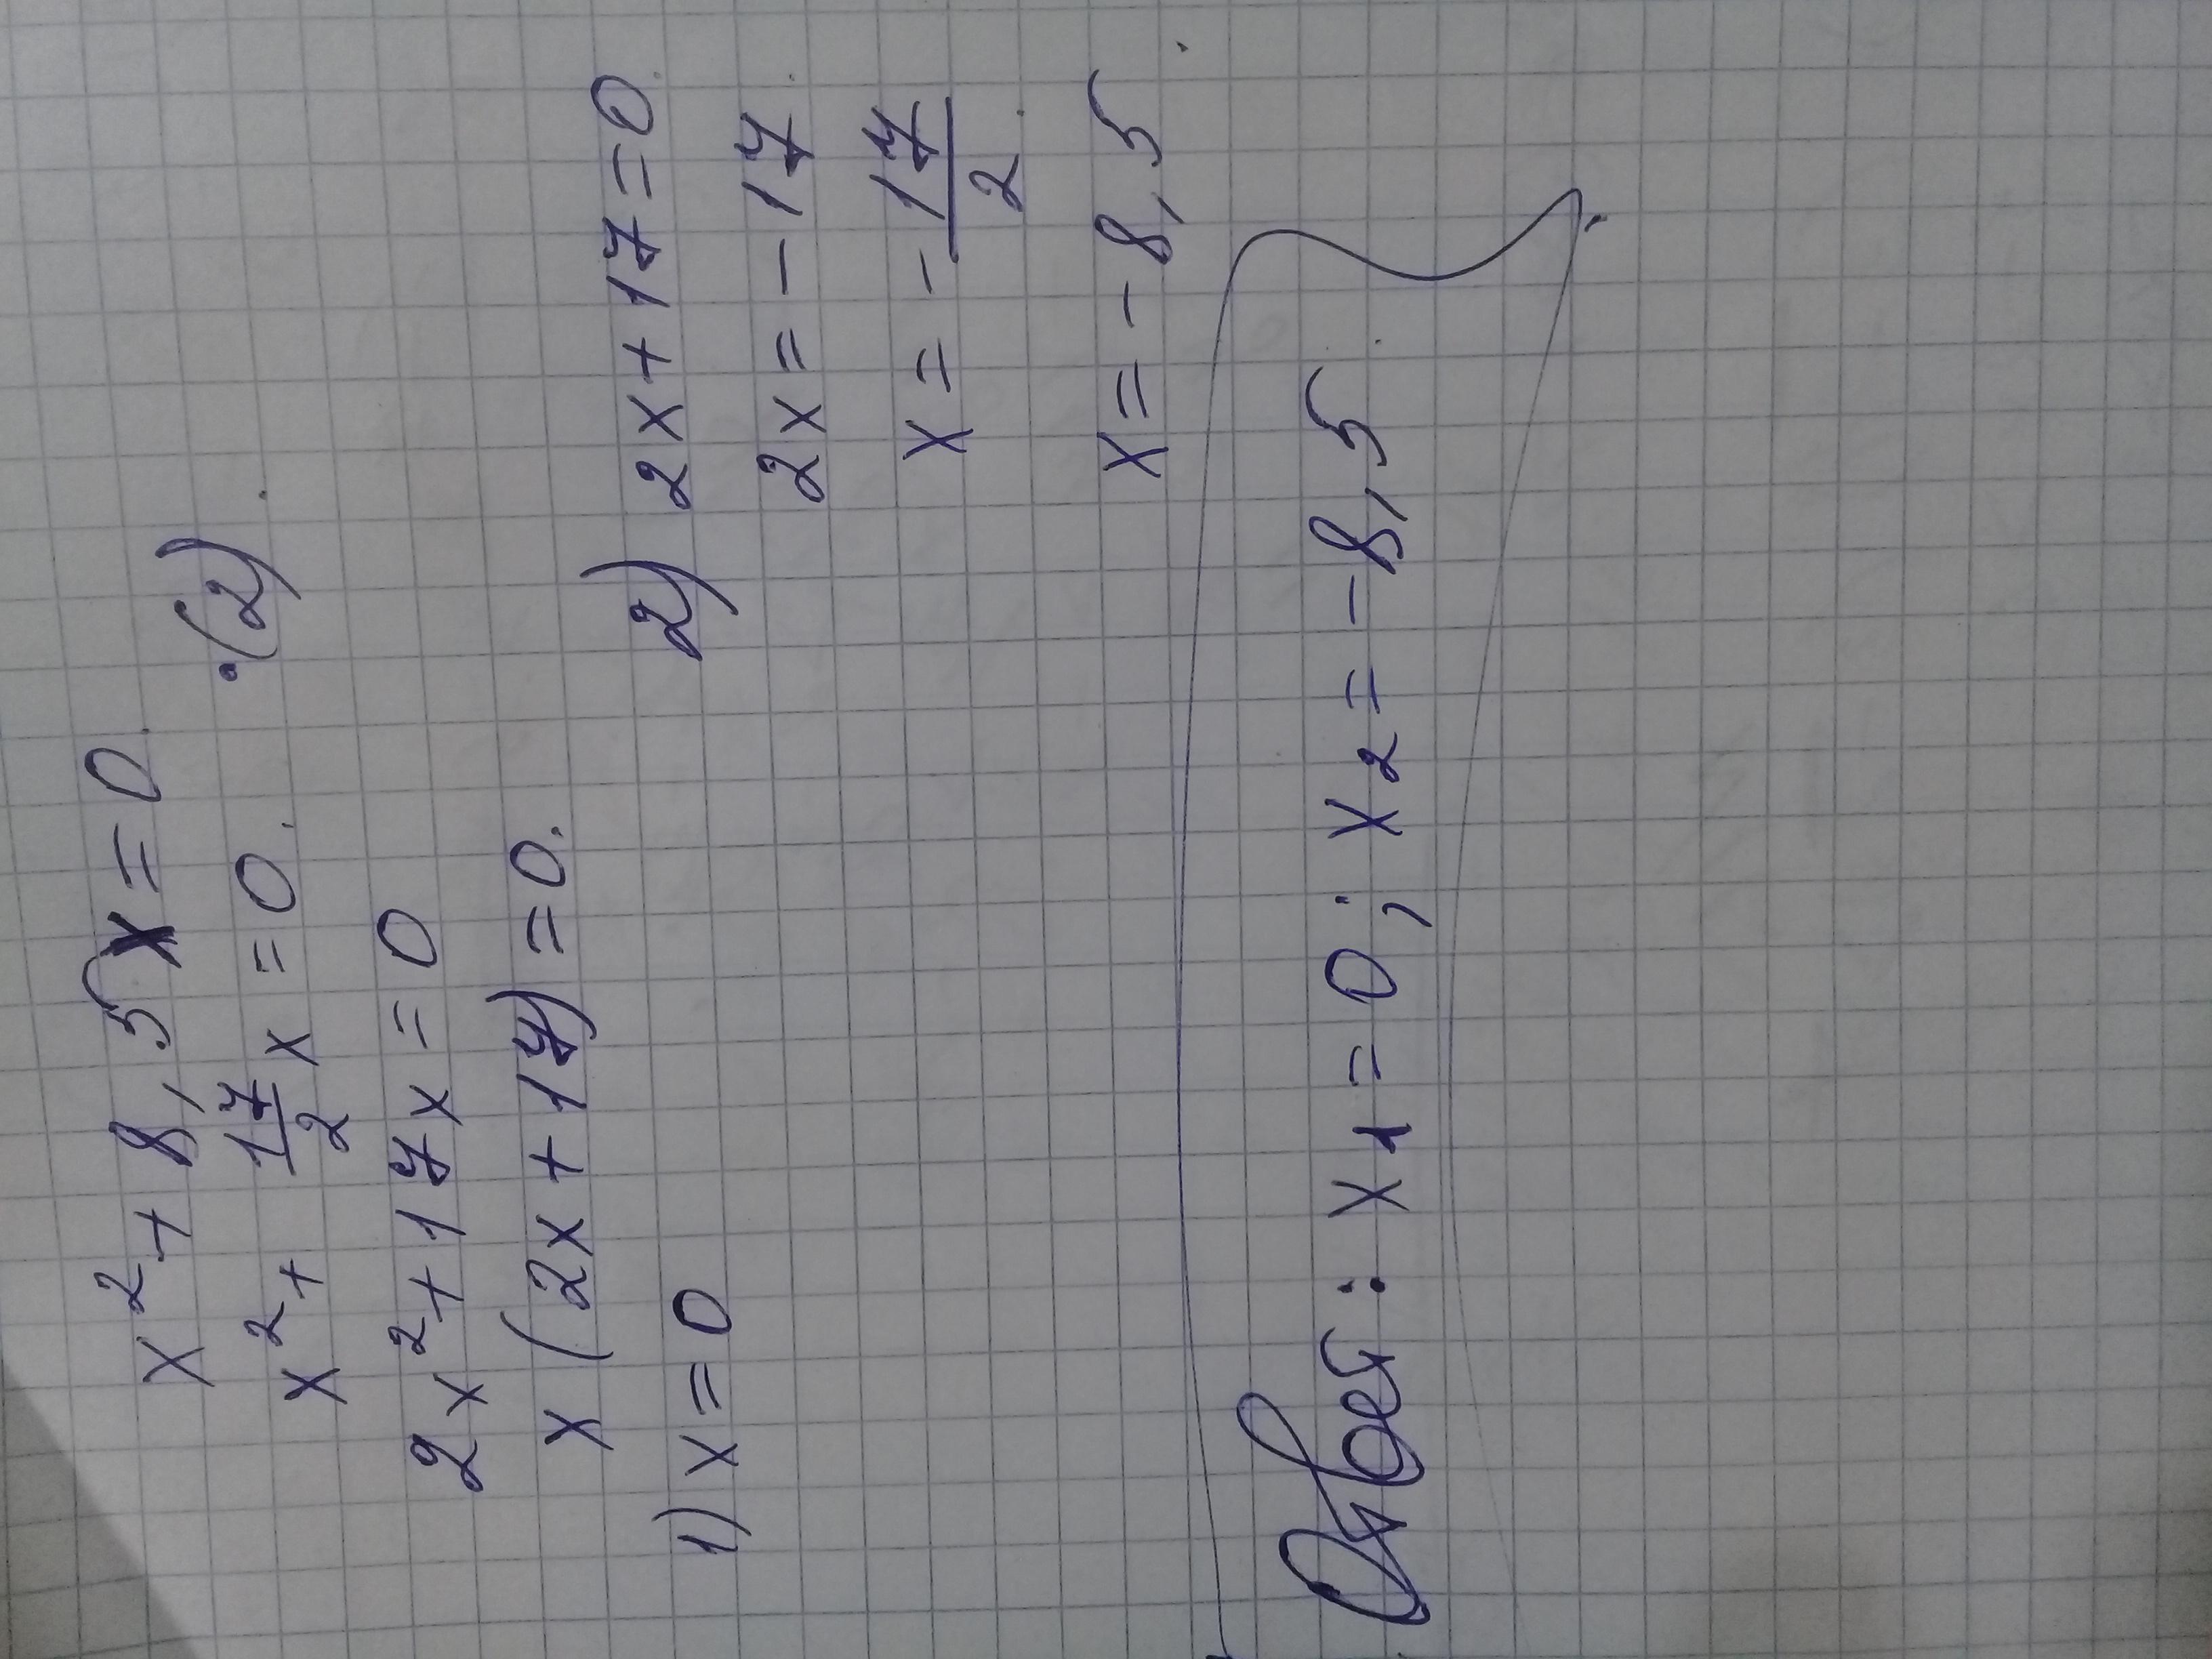 x² + 8,5x = 0.
x² + 17/2 x = 0. ·(2)
2x² + 17x = 0
x(2x + 17) = 0.
1) x = 0
2) 2x + 17 = 0
2x = -17
x = -17/2
x = -8,5
Ответ: x₁ = 0; x₂ = -8,5